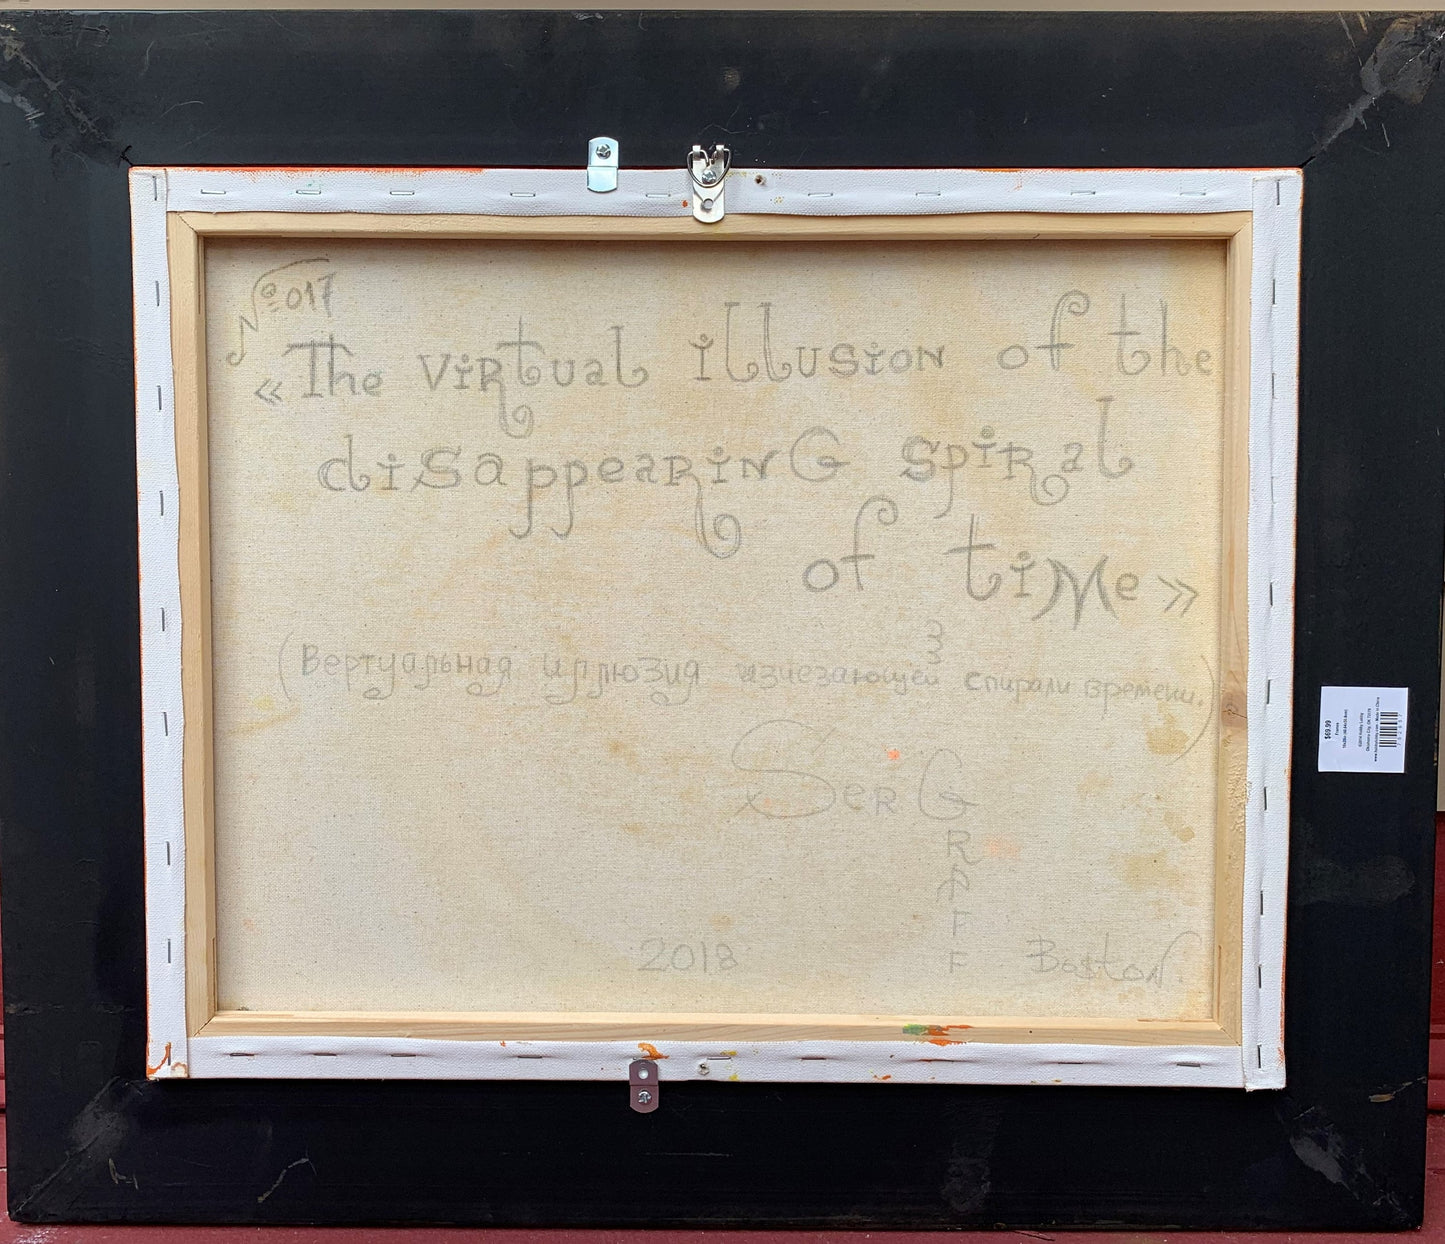 №017
«The virtual illusion of the
disappearing spiral
of time»
(Вертуальная иллюзия изчезающей спирали времени.)
Ser Graff
2018
Boston.
$69.99
Frames